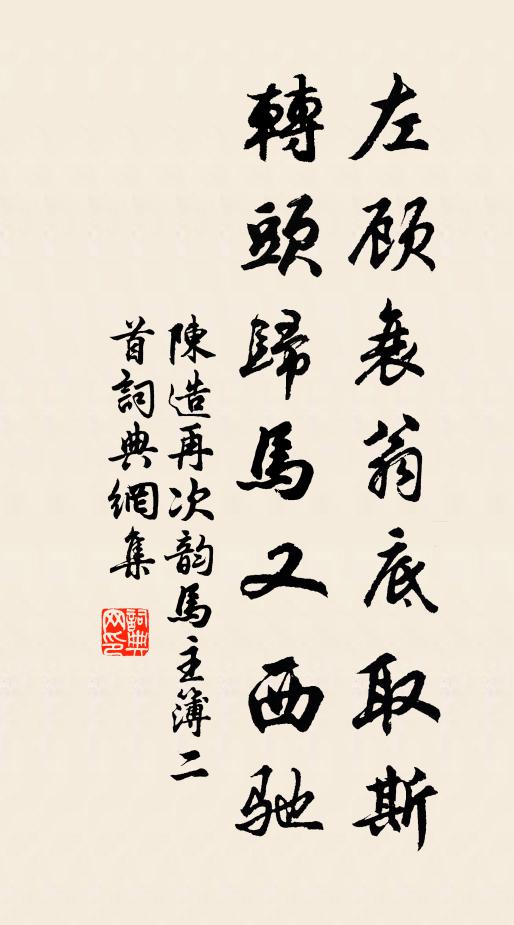 左顾衰翁底取斯
轉頭歸馬又西馳
陳造再次韵馬主簿二
首詞典網集
詞典网印